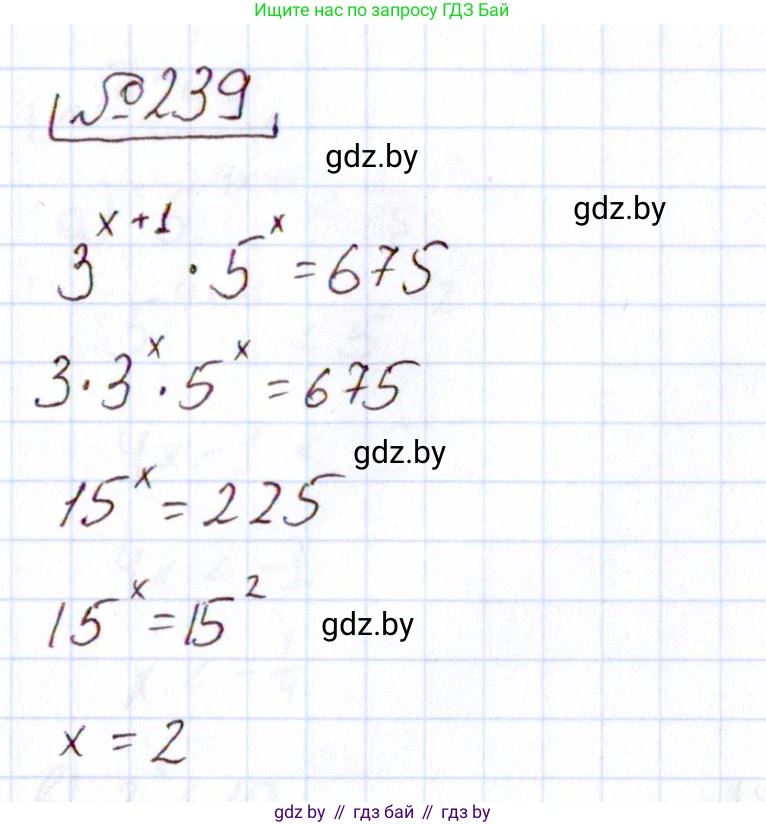 Ищите нас по запросу ГДЗ Бай
№239
gdz.by
gdz.by
3^{x+1} · 5^x = 675
3 · 3^x · 5^x = 675
gdz.by
15^x = 225
15^x = 15^2
gdz.by
x = 2
gdz by // гдз бай // gdz by